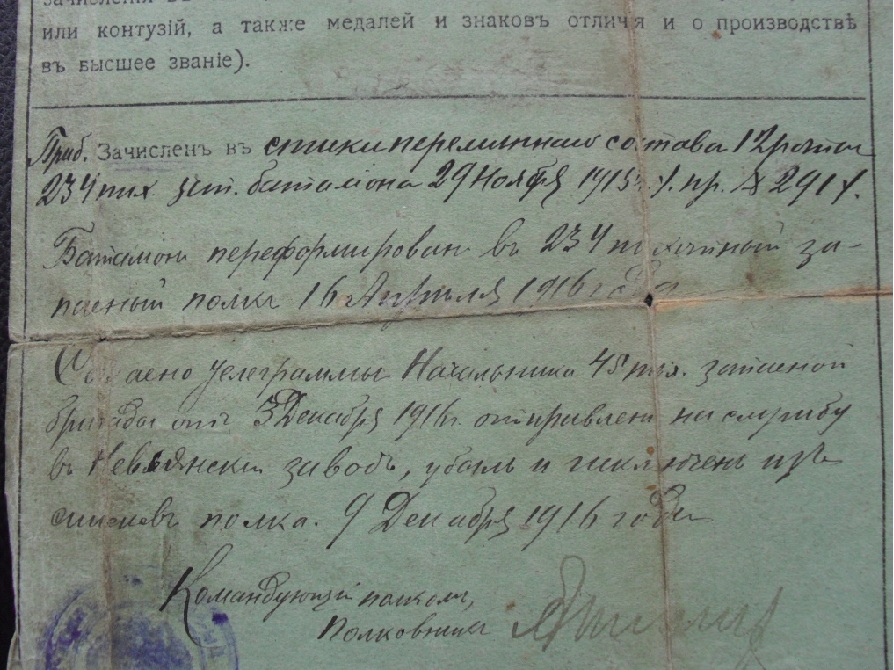 зачисленія въ
или контузій, а также медалей и знаковъ отличія и о производствѣ
въ высшее званіе).
Приб. Зачисленъ въ списки перемѣннаго состава 12 роты
234 пѣх. зап. баталіона 29 Ноября 1915 г. пр. № 291 г.
Баталіонъ переформированъ въ 234 пѣхотный за-
пасный полкъ 16 Апрѣля 1916 года
Согласно телеграммы Начальника 45 пѣх. запасной
бригады отъ 3 Декабря 1916 г. отправленъ на службу
въ Невьянскій заводъ, убылъ и исключенъ изъ
списковъ полка. 9 Декабря 1916 года
Командующій полкомъ,
Полковникъ